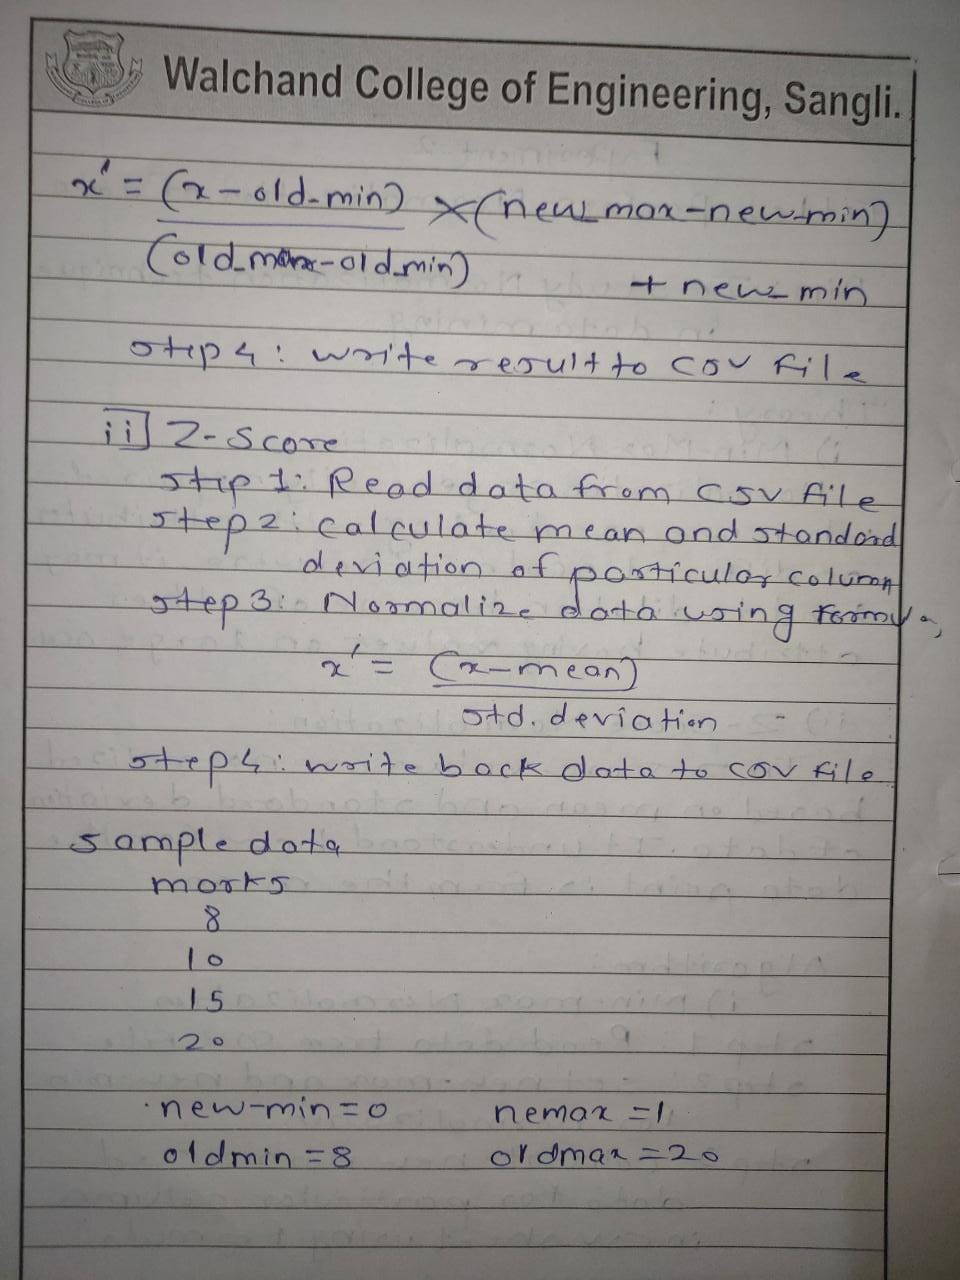 Walchand College of Engineering, Sangli.
x' = (x - old-min) × (new_max-new-min)
(old_max-old_min)
+ new_min
step 4: write result to csv file
ii] Z-Score
step 1: Read data from csv file
step 2: calculate mean and standard
deviation of particular column
step 3: Normalize data using formula,
x' = (x-mean)
std. deviation
step 4: write back data to csv file
sample data
marks
8
10
15
20
new-min = 0 nemax = 1
oldmin = 8 oldmax = 20